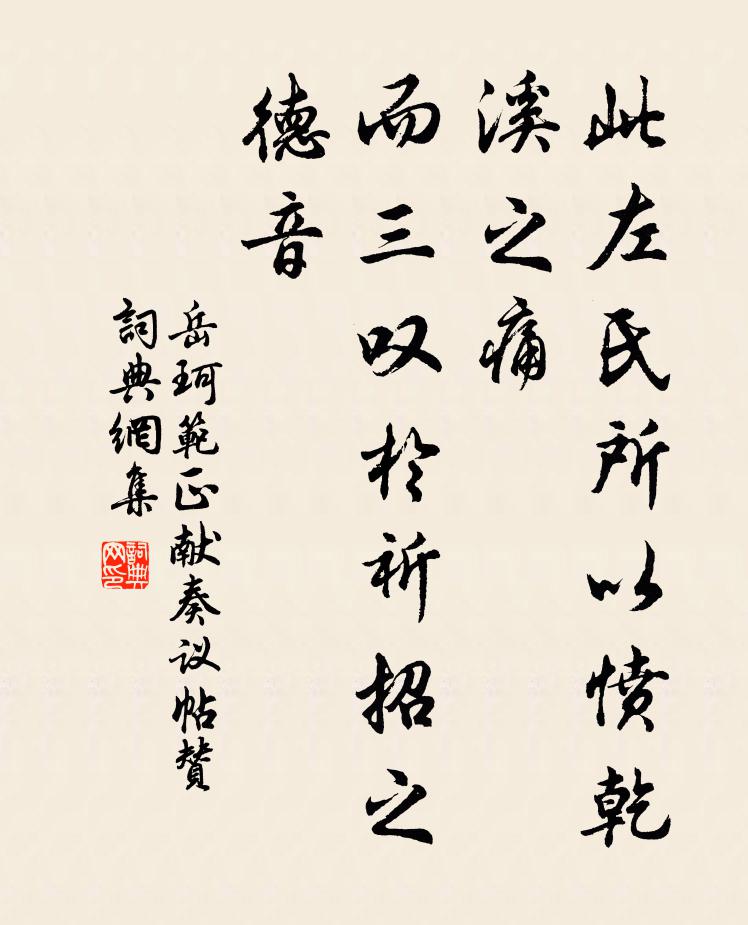 此左氏所以愤乾
溪之痛
而三叹於祈招之
德音
岳珂範正献奏议帖赞
詞典網集
詞典网印